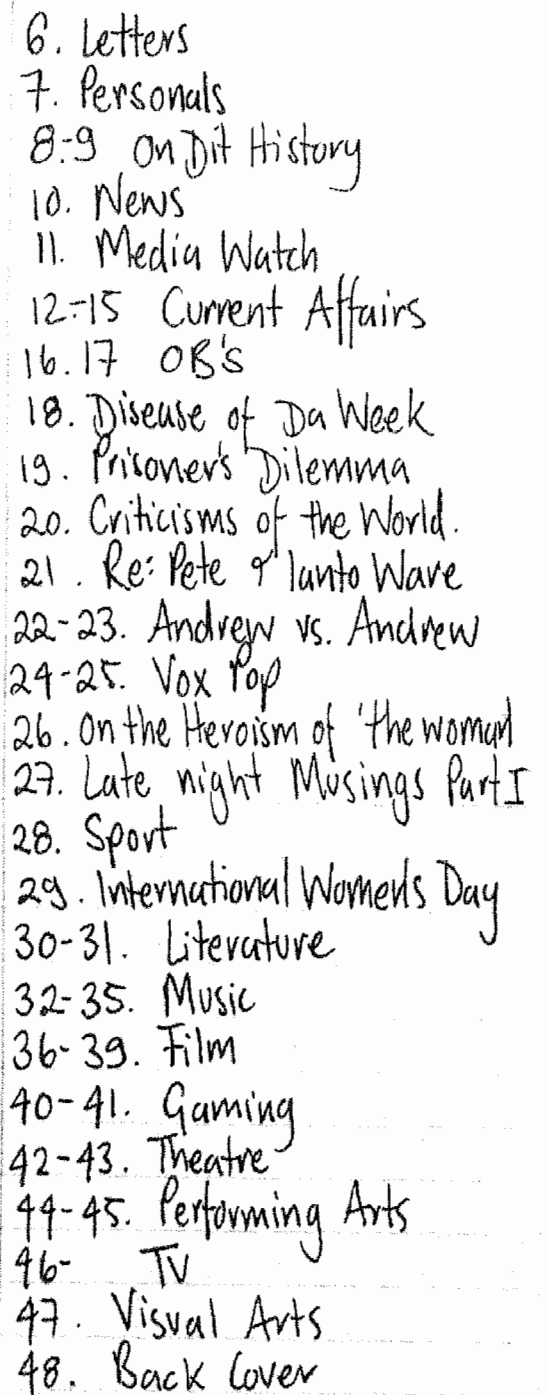 6. Letters
7. Personals
8-9 On Dit History
10. News
11. Media Watch
12-15 Current Affairs
16.17 OB's
18. Disease of Da Week
19. Prisoner's Dilemma
20. Criticisms of the World.
21. Re: Pete & Ianto Ware
22-23. Andrew vs. Andrew
24-25. Vox Pop
26. On the Heroism of 'the woman
27. Late night Musings Part I
28. Sport
29. International Women's Day
30-31. Literature
32-35. Music
36-39. Film
40-41. Gaming
42-43. Theatre
44-45. Performing Arts
46- TV
47. Visual Arts
48. Back Cover